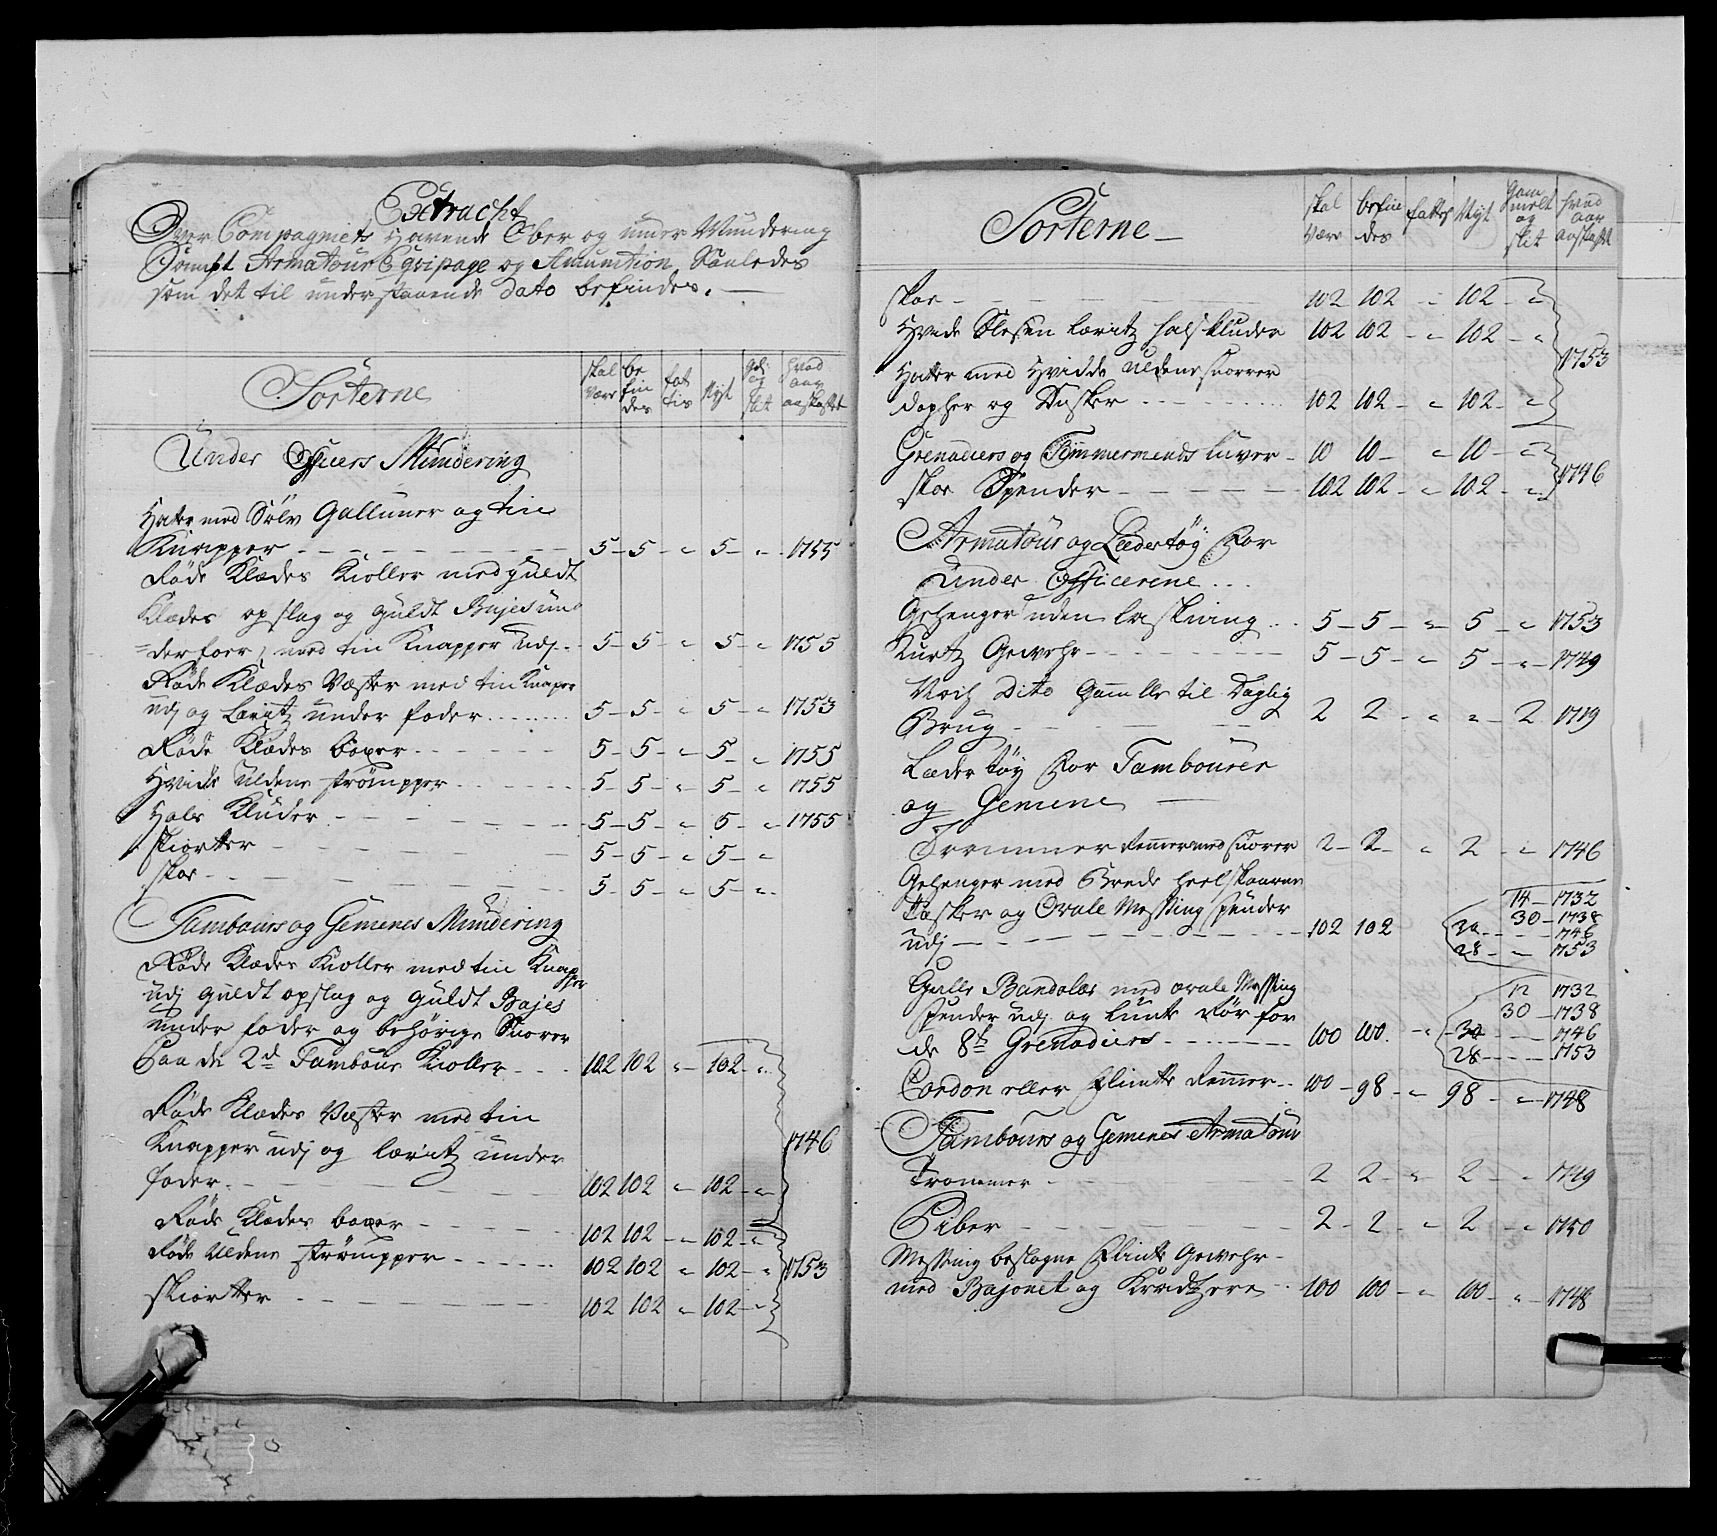 Extracht
Over Compagniets Havende Ober og under Mundering
Sampt Armatour Eqvipage og Amunition Saaledes
som det til understaaende dato befindes. —
Sorterne | skal være | be fin des | fat tis | Nyt | gl: og slet | hvad aar anskaffet
Under Officers Mundering
Hatte med Sölv Galluner og tin
Knapper — 5 — 5 — " 5 — " 1755
Røde Klædes Kioller med guldt
Klædes opslag og guldt Bajes un
=derfoer, med tin Knapper udj — 5 — 5 — " 5 — " 1755
Røde Klædes Vester med tin Knaper
udj og Læritz under foder — 5 — 5 — " 5 — " 1753
Røde Klædes boxer — 5 — 5 — " 5 — " 1755
Hvide Uldene strömpper — 5 — 5 — " 5 — " 1755
Hals Kluder — 5 — 5 — " 5 — " 1755
Skiortter — 5 — 5 — " 5 — "
Skoe — 5 — 5 — " 5 — "
Tambours og Gemenes Mundering
Røde Klædes Kioller med tin Knapper
udj guldt opslag og guldt Bajes
under foder og behörige Snorer
Paa de 2de Tambour Kioller — 102 102 " — 102 — "
Røde Klædes Vester med tin
Knapper udj og læritz under
foder — 102 102 " 102 — " 1746
Røde Klædes boxer — 102 102 — " 102 — "
Røde Uldene strömpper — 102 102 " 102 — " 1753
Skiortter — 102 102 " 102 — "
Sorterne — | skal være | befin des | fattes | Nyt | gam melt og slet | hvad aar anskaffet
Skoe — 102 102 — " 102 — "
Hvide Slesen læritz halskluder 102 102 — " 102 — " 1753
Hatter med Hvidde Uldene snorrer
Dopher og Dusker — 102 102 — " 102 — "
Grenadiers og Timmermends Luver — 10 10 — " 10 — "
Skoe Spender — 102 102 — " 102 — " 1746
Armatöur og Lædertöy For
Under Officerene . . .
Gehenger uden laskning . . 5 — 5 — " — 5 — " 1753
Kurtz Gewehr — 5 — 5 — " 5 — " 1749
Noch Dito gamlle til Daglig
Brug — 2 2 — " " — 2 1719
Læder töy For Tambourer
og Gemene —
Trommer Remmer med snorer 2 — 2 — " 2 — " 1746
Gehenger med Brede
14 — 1732
Tasker og Ovale Messing spender 30 — 1738
udj — 102 102 30 — 1746
28 — " — 1753
Gulle Bandoler med ovale Messing 12 1732
spender udj og Lunte Rör for 30 — 1738
de 8te Grenadiers — 100 100. — " 30 — 1746
28 — 1753
Cordon eller Flintte Remmer — 100 — 98 — " 98 — " — 1748
Tambours og Gemenes Armatour
Trommer — 2 2 — " 2 — " 1749
Piber — 2 — 2 — " 2 — " 1750
Messing beslagne Flinte Gewehr —
med Bajonet og Kradtzere — 100 100 — " 100 — " — 1748